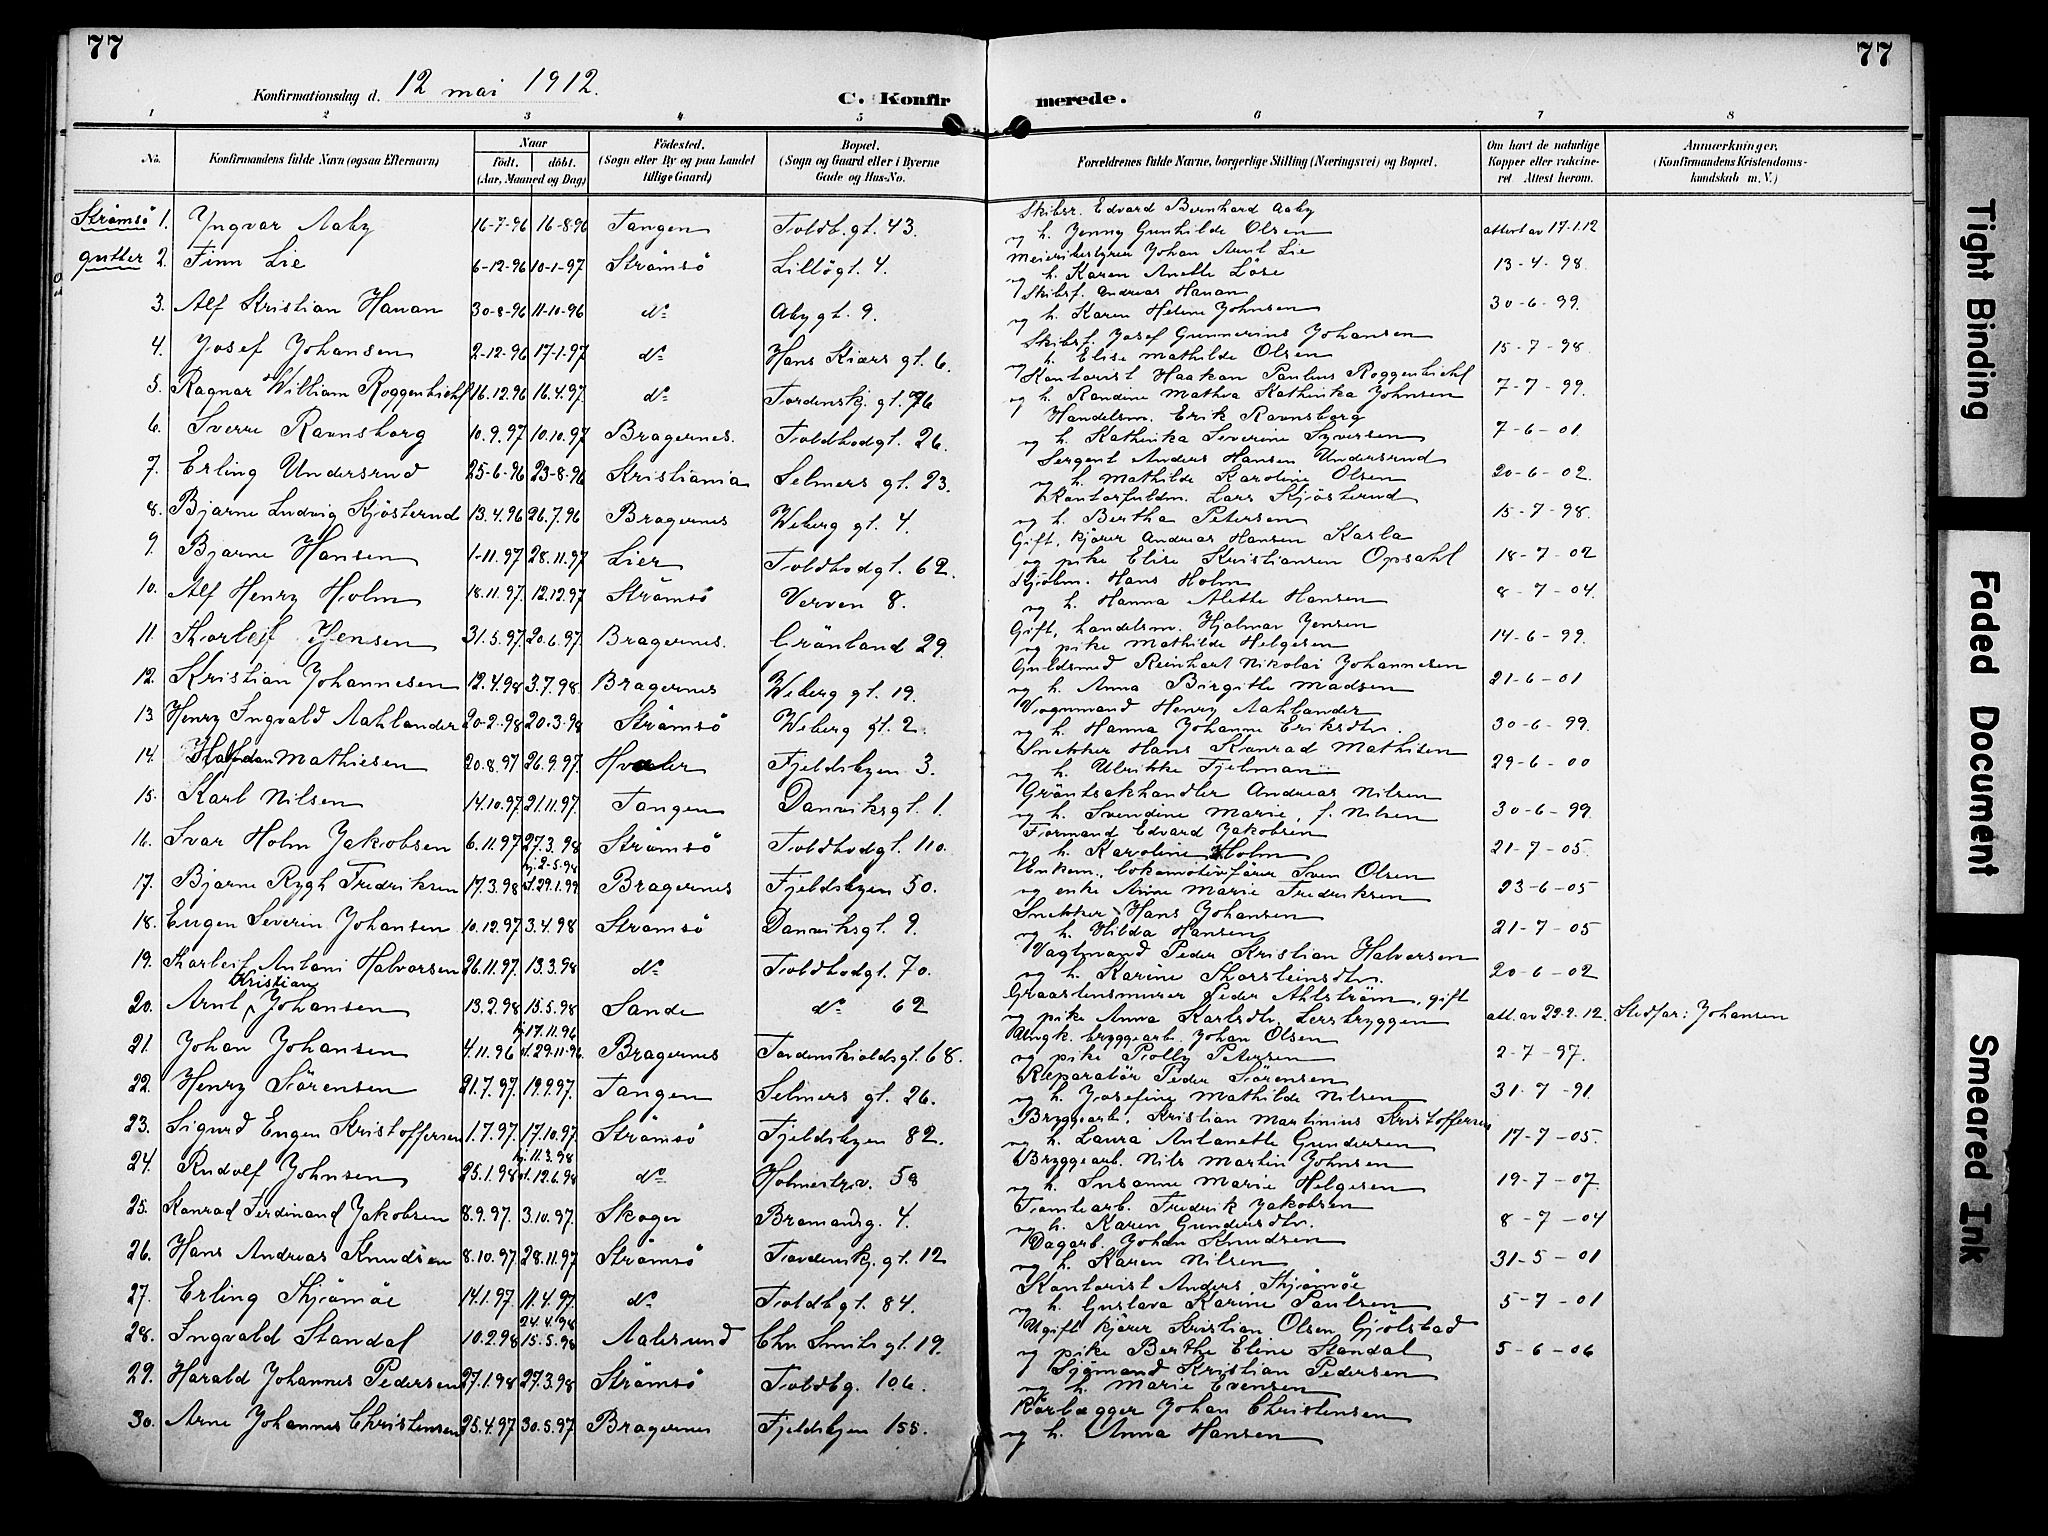 77
77
Konfirmationsdag d. 12 mai 1912.
C. Konfirmerede.
1 2 3 4 5 6 7 8
No. Konfirmandens fulde Navn (ogsaa Efternavn) Naar født. døbt. (Aar, Maaned og Dag) Födested. (Sogn eller By og paa Landet tillige Gaard) Bopæl. (Sogn og Gaard eller i Byerne Gade og Hus-No. Forældrenes fulde Navne, borgerlige Stilling (Næringsvei) og Bopæl. Om havt de naturlige Kopper eller vakcineret Attest herom. Anmærkninger. (Konfirmandens Kristendomskundskab m. V.)
Strømsö gutter
1. Yngvar Aaby 16-7-96 16-8-96 Tangen Toldb. gt. 43. Skibsr. Edvard Bernhard Aaby
og h. Jenny Gunhilde Olsen attest av 17-1-12
2. Finn Lie 6-12-96 10-1-97 Strømsö Lilløgt. 4. Meieribestyrer Johan Arnt Lie
og h. Karen Anette Löse 13-4-98.
3. Alf Kristian Hanan 30-8-96 11-10-96 do Aby gt. 9. Skibsf. Andreas Hanan
og h. Karen Heline Johnsen 30-6-99.
4. Josef Johansen 2-12-96 17-1-97 do Hans Kiærs gt. 6. Skibsf. Josef Gunnerius Johansen
og h. Elise Mathilde Olsen 15-7-98.
5. Ragnar William Roggenbichl 16.12.96 16.4.97. do Tordenskj. gt. 76 Kontorist Haakon Paulus Roggenbichl
og h. Randine Mathea Kathinka Johnsen 7-7-99.
6. Sverre Ravnsborg 10.9.97 10.10.97 Bragernes. Toldbodgt. 26. Handelsm. Erik Ravnsborg
og h. Kathinka Severine Syversen 7-6-01.
7. Erling Undersrud 25-6-96 23-8-96 Kristiania Selmers gt. 23. Sergent Anders Hansen Undersrud
og h. Mathilde Karoline Olsen 20-6-02.
8. Bjarne Ludvig Kjösterud 13.4.96 26.7.96 Bragernes Weberg gt. 4. Kontorfuldm. Lars Kjösterud
og h. Bertha Petersen 15-7-98.
9. Bjarne Hansen 1-11.97 28.11.97 Lier Toldbodgt. 62. Gift, kjører Andreas Hansen Kasla
og pike Elise Kristiansen Opsahl 18-7-02
10. Alf Henry Holm 18.11.97. 12.12.97 Strømsö Verven 8. Kjölm. Hans Holm
og h. Hanna Alette Hansen 8-7-04.
11. Thorleif Jensen 31.5.97 20.6.97. Bragernes. Grönland 29. Gift, handelsm. Hjalmar Jensen
og pike Mathilde Helgesen 14-6-99.
12. Kristian Johannesen 12.4.98 3.7.98. Bragernes Weberg gt. 19. Guldsmed Reinhart Nikolai Johannesen
og h. Anna Birgitte Madsen 21-6-01
13. Henry Ingvald Aahlander 20-2.98 20.3.98 Strømsö Weberg gt. 2. Vognmand Henry Aahlander
og h. Hanna Johanne Eriksdtr. 30-6-99.
14. Halfdan Mathiesen 20.8.97 26.9.97. Hvaler Fjeldsbyen 3. Snekker Hans Konrad Mathisen
og h. Ulrikke Fjelman 29-6-00
15. Karl Nilsen 14.10.97 21.11.97. Tangen Danviksgt. 1. Gröntsakhandler Andreas Nilsen
og h. Svendine Marie, f. Nilsen 30-6-99.
16. Ivar Holm Jakobsen 6.11.97 27.3.98 Strømsö Toldbodgt. 110. Formand Edvard Jakobsen
og h. Karoline Holm 21-7-05.
17. Bjarne Rygh Fredriksen 17.3.98 hj. 2-5.98 st. 29.1.99 Bragernes Fjeldsbyen 50. Enkem., lokomotivförer Sven Olsen
og enke Anne Marie Fredriksen 23-6-05
18. Eugen Severin Johansen 10.12.97 3.4.98 Stromsö Danviksgt. 9. Snekker Hans Johansen
og h. Hilda Hansen 21-7-05
19. Thorleif Antoni Halvorsen 26.11.97. 13.3.98 do Toldbodgt. 70. Vagtmand Peder Kristian Halvorsen
og h. Karine Thorsteinsdtr. 20-6-02
20. Arnt Kristian Johansen 13.2.98 15.5.98 Sande do 62 Graastensmurer Peder Ahlström, gift
og pike Anna Karlsdtr. Lersbryggen att. av 22.2.12. Stedfar: Johansen
21. Johan Johansen 4.11.96 hj. 17.11.96 st. 29.11.96 Bragernes Tordenskioldsgt. 68. Ungk. bryggearb. Johan Olsen
og pike Polly Petersen 2-7-97.
22. Henry Sörensen 21.7.97. 19.9.97. Tangen Selmers gt. 26. Reparatör Peder Sörensen
og h. Josefine Mathilde Nilsen 31-7-91
23. Sigurd Eugen Kristoffersen 1.7.97. 17.10.97. Strømsö Fjeldsbyen 82. Bryggearb. Kristian Martinius Kristoffersen
og h. Laura Antonette Gundersen 17-7-05.
24. Rudolf Johnsen 25.1.98 hj. 11.3.98 st. 12.6.98 do Holmestr.v. 58 Bryggearb. Nils Martin Johnsen
og h. Susanne Marie Helgesen 19-7-07.
25. Konrad Ferdinand Jakobsen 8.9.97. 3.10.97. Skoger Bromandsg. 4. Tomtearb. Fredrik Jakobsen
og h. Karen Gundersdtr. 8-7-04
26. Hans Andreas Knudsen 8.10.97 28.11.97 Strømsö Tordenskj. gt. 12 Dagarb. Johan Knudsen
og h. Karen Nilsen 31-5-01
27. Erling Skjömöe 14.1.97. 11.4.97. do Toldbgt. 84. Kontorist Anders Skjömöe
og h. Gustava Karine Paulsen 5-7-01
28. Ingvald Standal 10.2.98 24.4.98 15.5.98 Aalesund Chr Smits gt. 19. Ugift kjører Kristian Olsen Gjölstad
og pike Berthe Eline Standal 5-6-06
29. Harald Johannes Pedersen 27.1.98 27.3.98 Strømsö Toldbg. 106. Sjømand Kristian Pedersen
og h. Marie Evensen
30. Arne Johannes Christensen 25.4.97 30.5.97 Bragernes Fjeldsbyen 155. Rörlægger Johan Christensen
og h. Anna Hansen
Tight Binding
Faded Document
Smeared Ink